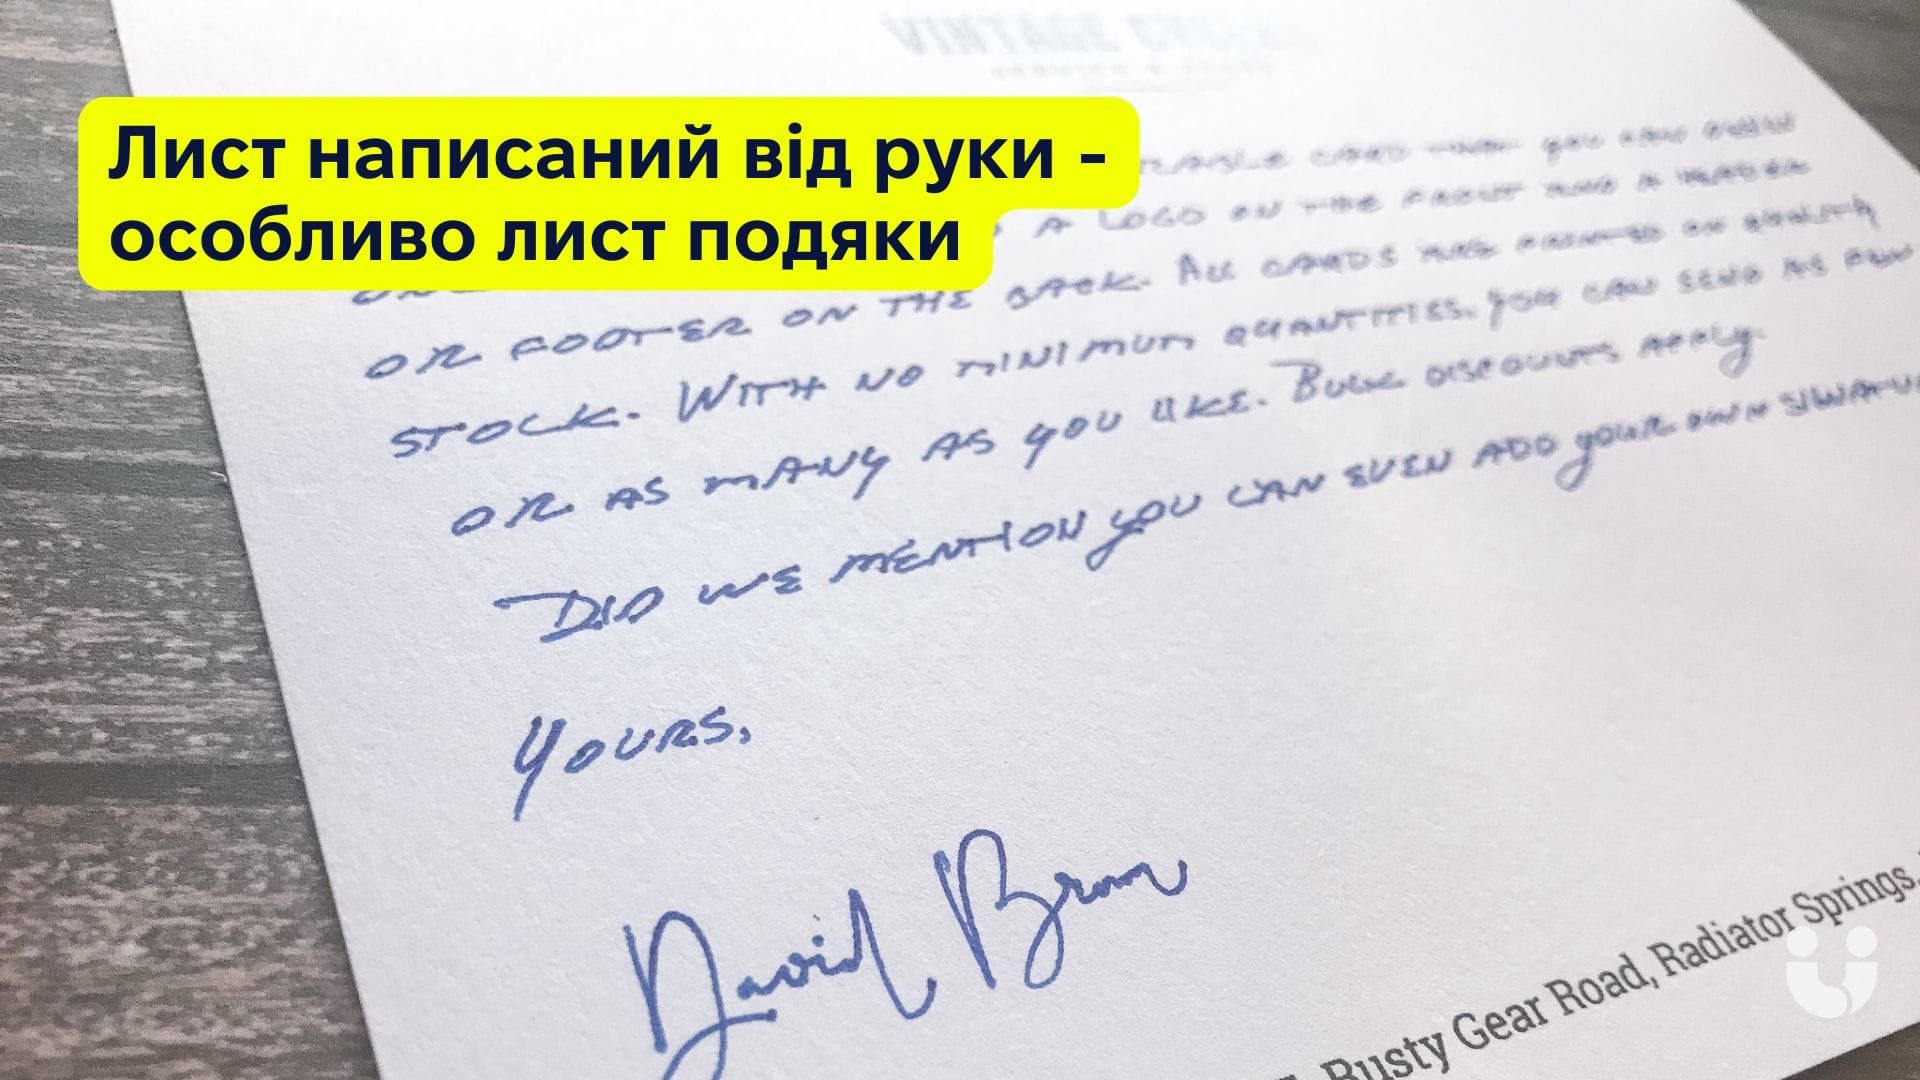 VINTAGE
Лист написаний від руки -
особливо лист подяки
CARD THAT YOU CAN
A LOGO ON THE FRONT AND A HEADER
OR FOOTER ON THE BACK. ALL CARDS ARE PRINTED ON QUALITY
STOCK. WITH NO MINIMUM QUANTITIES. YOU CAN SEND AS FEW
OR AS MANY AS YOU LIKE. BULK DISCOUNTS APPLY.
DID WE MENTION YOU CAN EVEN ADD YOUR OWN
YOURS,
David Brown
Rusty Gear Road, Radiator Springs,